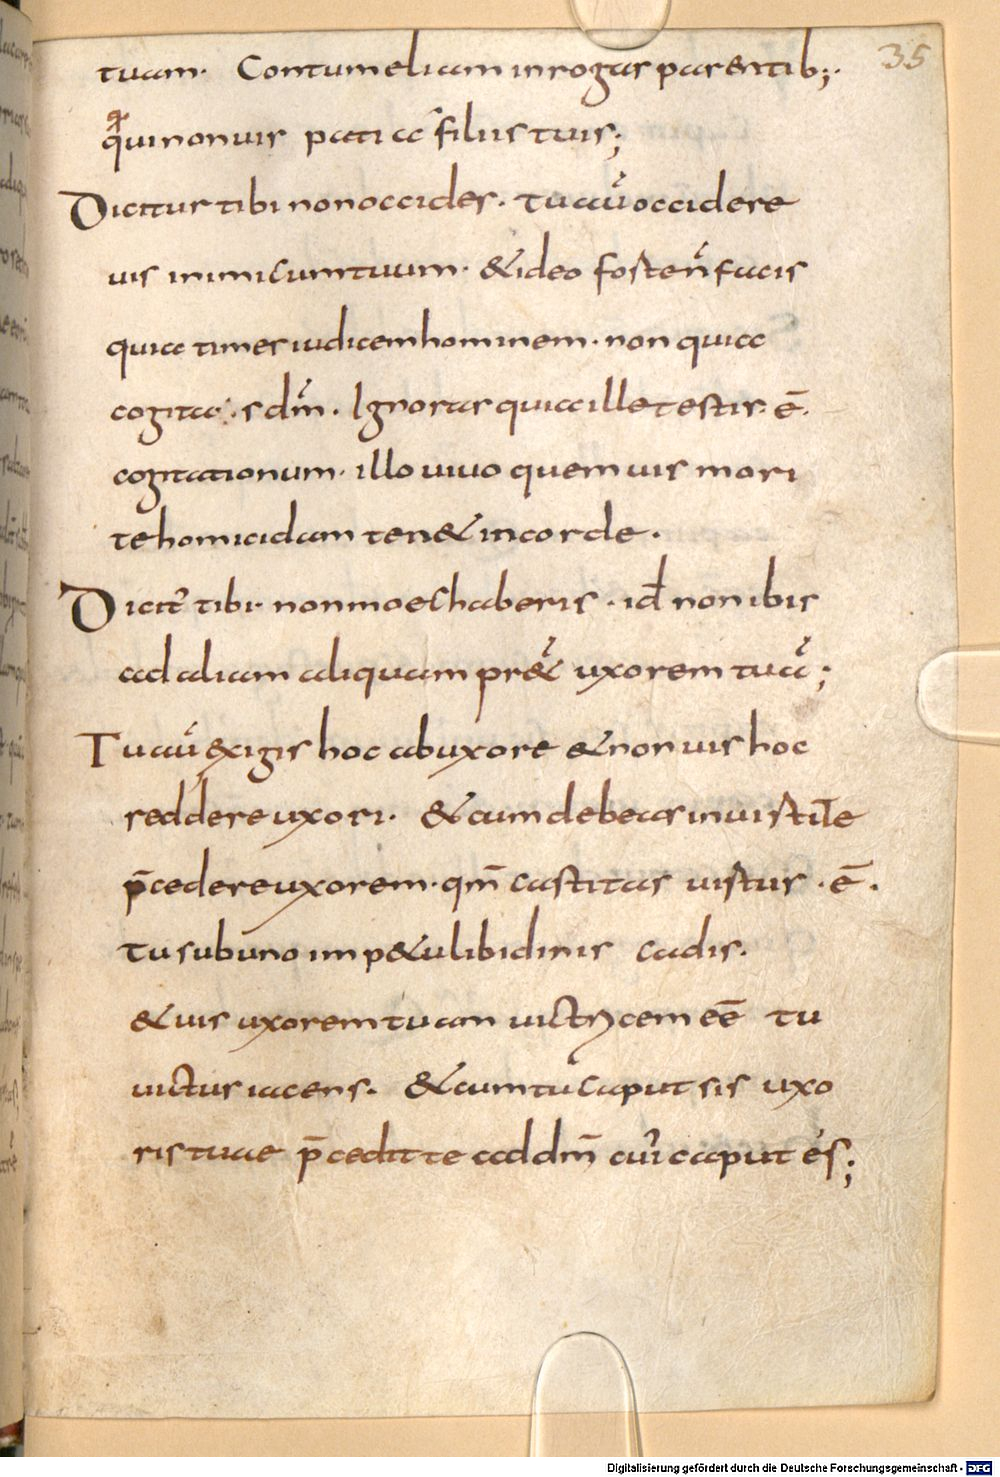 35
tuam. Contumeliam inrogas parentib;.
qui non uis pati a filiis tuis;
Dicitur tibi non occides. tu aū occidere
uis inimicum tuum. & ideo fosten̄ facis
quia times iudicem hominem. non quia
cogitas dm̄. Ignoras quia ille testis. ē.
cogitationum. illo uiuo quem uis mori
te homicidam ten& in corde.
Dicit̄ tibi. non moechaberis. id non ibis
ad aliam aliquam pr&̄ uxorem tuā;
Tu aū exigis hoc ab uxore & non uis hoc
reddere uxori. & cum debeas in uistute
p̄cedere uxorem. qm̄ castitas uistus. ē.
tu sub uno imp&u libidinis cadis.
& uis uxorem tuam uictricem eē tu
uictus iacens. & cum tu caput sis uxo
ris tuae p̄cedit te ad dm̄ cui' caput és;
Digitalisierung gefördert durch die Deutsche Forschungsgemeinschaft - DFG